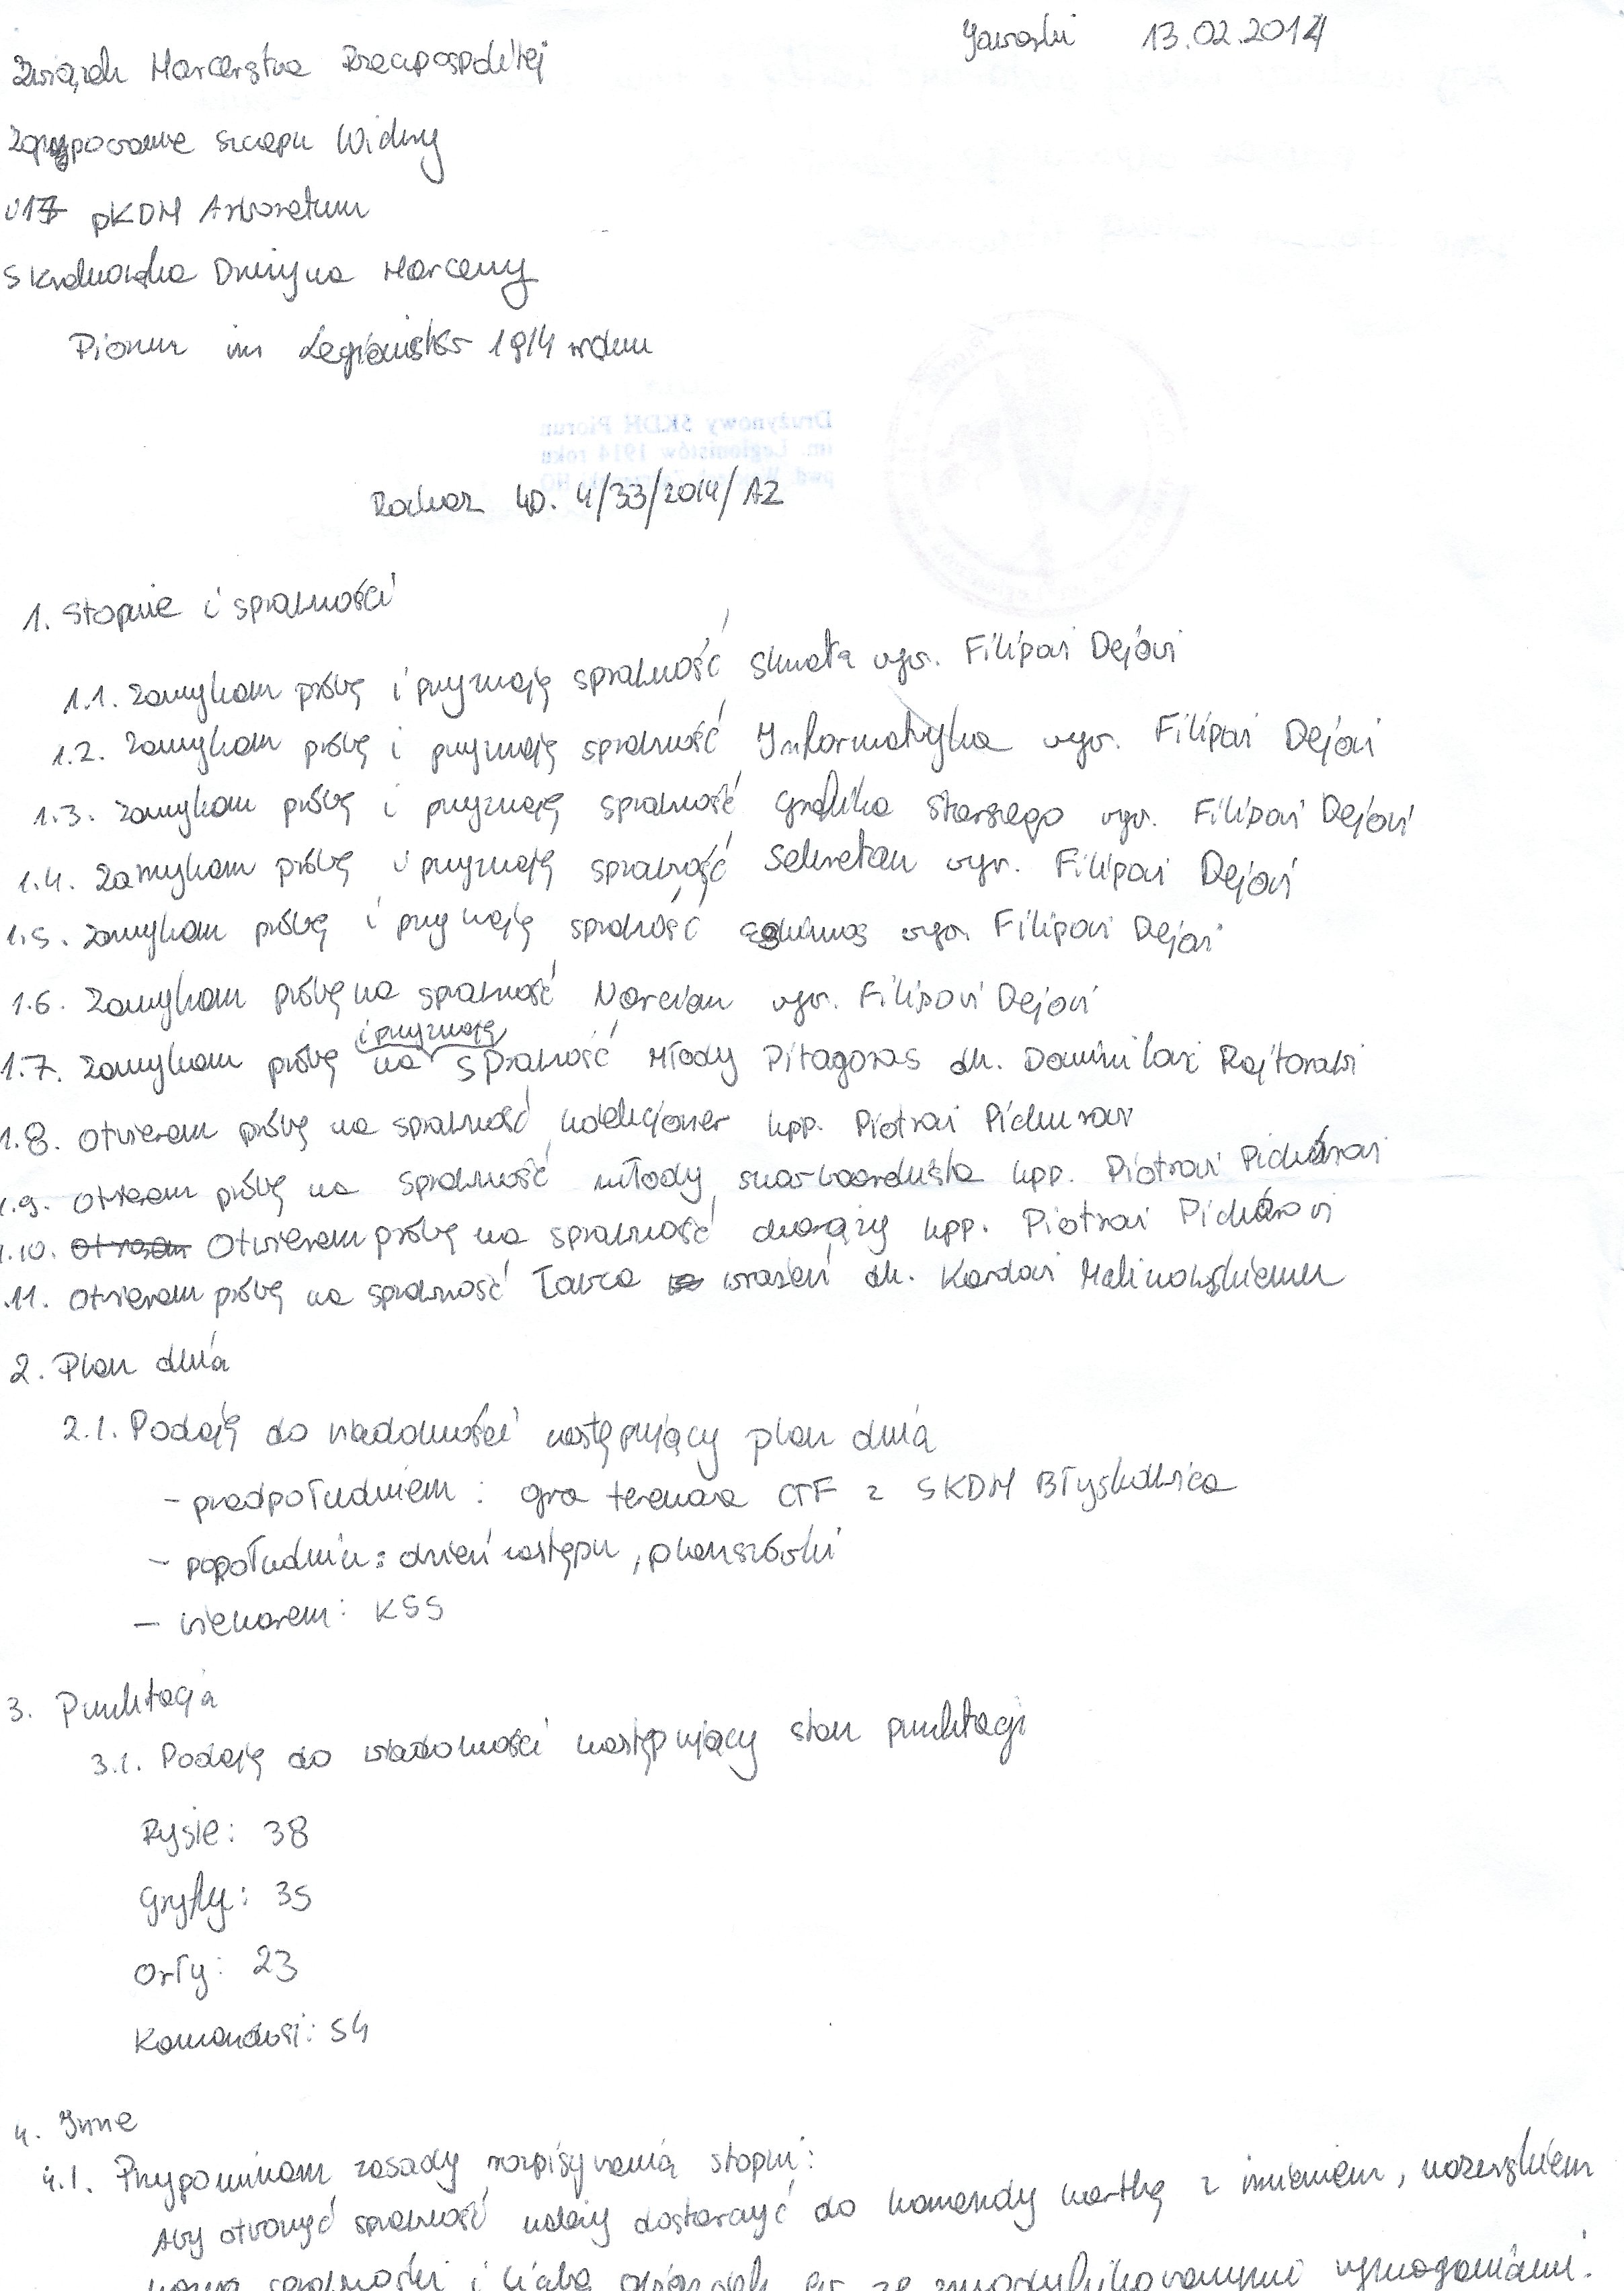 Jaworki 13.02.2014
Związek Harcerstwa Rzeczpospolitej
Zgrupowanie Szczepu Wichry
U17 pKDH Arboretum
5 Krakowska Drużyna Harcerzy
Piorun im Legionistów 1914 roku
Drużynowy 5KDH Piorun
im. Legionistów 1914 roku
pwd. HO
Rozkaz 4D. 4/33/2014/AZ
1. Stopnie i sprawności
1.1. Zamykam próbę i przyznaję sprawność Skryba wyw. Filipowi Dejowi
1.2. Zamykam próbę i przyznaję sprawność Informatyka wyw. Filipowi Dejowi
1.3. Zamykam próbę i przyznaję sprawność grafika starszego wyw. Filipowi Dejowi
1.4. Zamykam próbę i przyznaję sprawność Sekretarz wyw. Filipowi Dejowi
1.5. Zamykam próbę i przyznaję sprawność wyw. Filipowi Dejowi
1.6. Zamykam próbę na sprawność Narciarz wyw. Filipowi Dejowi
1.7. Zamykam próbę na i przyznaję sprawność Młody Pitagoras dh. Dominikowi Rajtarowi
1.8. Otwieram próbę na sprawność kolekcjoner wpp. Piotrowi Pichórowi
1.9. Otwieram próbę na sprawność młody snowboardzista wpp. Piotrowi Pichórowi
1.10. Otwieram próbę na sprawność chorąży wpp. Piotrowi Pichórowi
.11. Otwieram próbę na sprawność Łowca wrażeń dh. Karolowi Malinowskiemu
2. Plan dnia
2.1. Podaję do wiadomości następujący plan dnia
- przedpołudniem: gra terenowa CTF z 5KDH Błyskawica
- popołudniu: dzień zastępu, planszówki
- wieczorem: KSS
3. Punktacja
3.1. Podaję do wiadomości następujący stan punktacji
Rysie: 38
Gryfy: 35
Orły: 23
Komandosi: 54
4. Inne
4.1. Przypominam zasady rozpisywania stopni:
Aby otworzyć sprawność należy dostarczyć do komendy kartkę z imieniem, nazwiskiem
nazwą sprawności i liczbą gwiazdek ze zmodyfikowanymi wymaganiami.